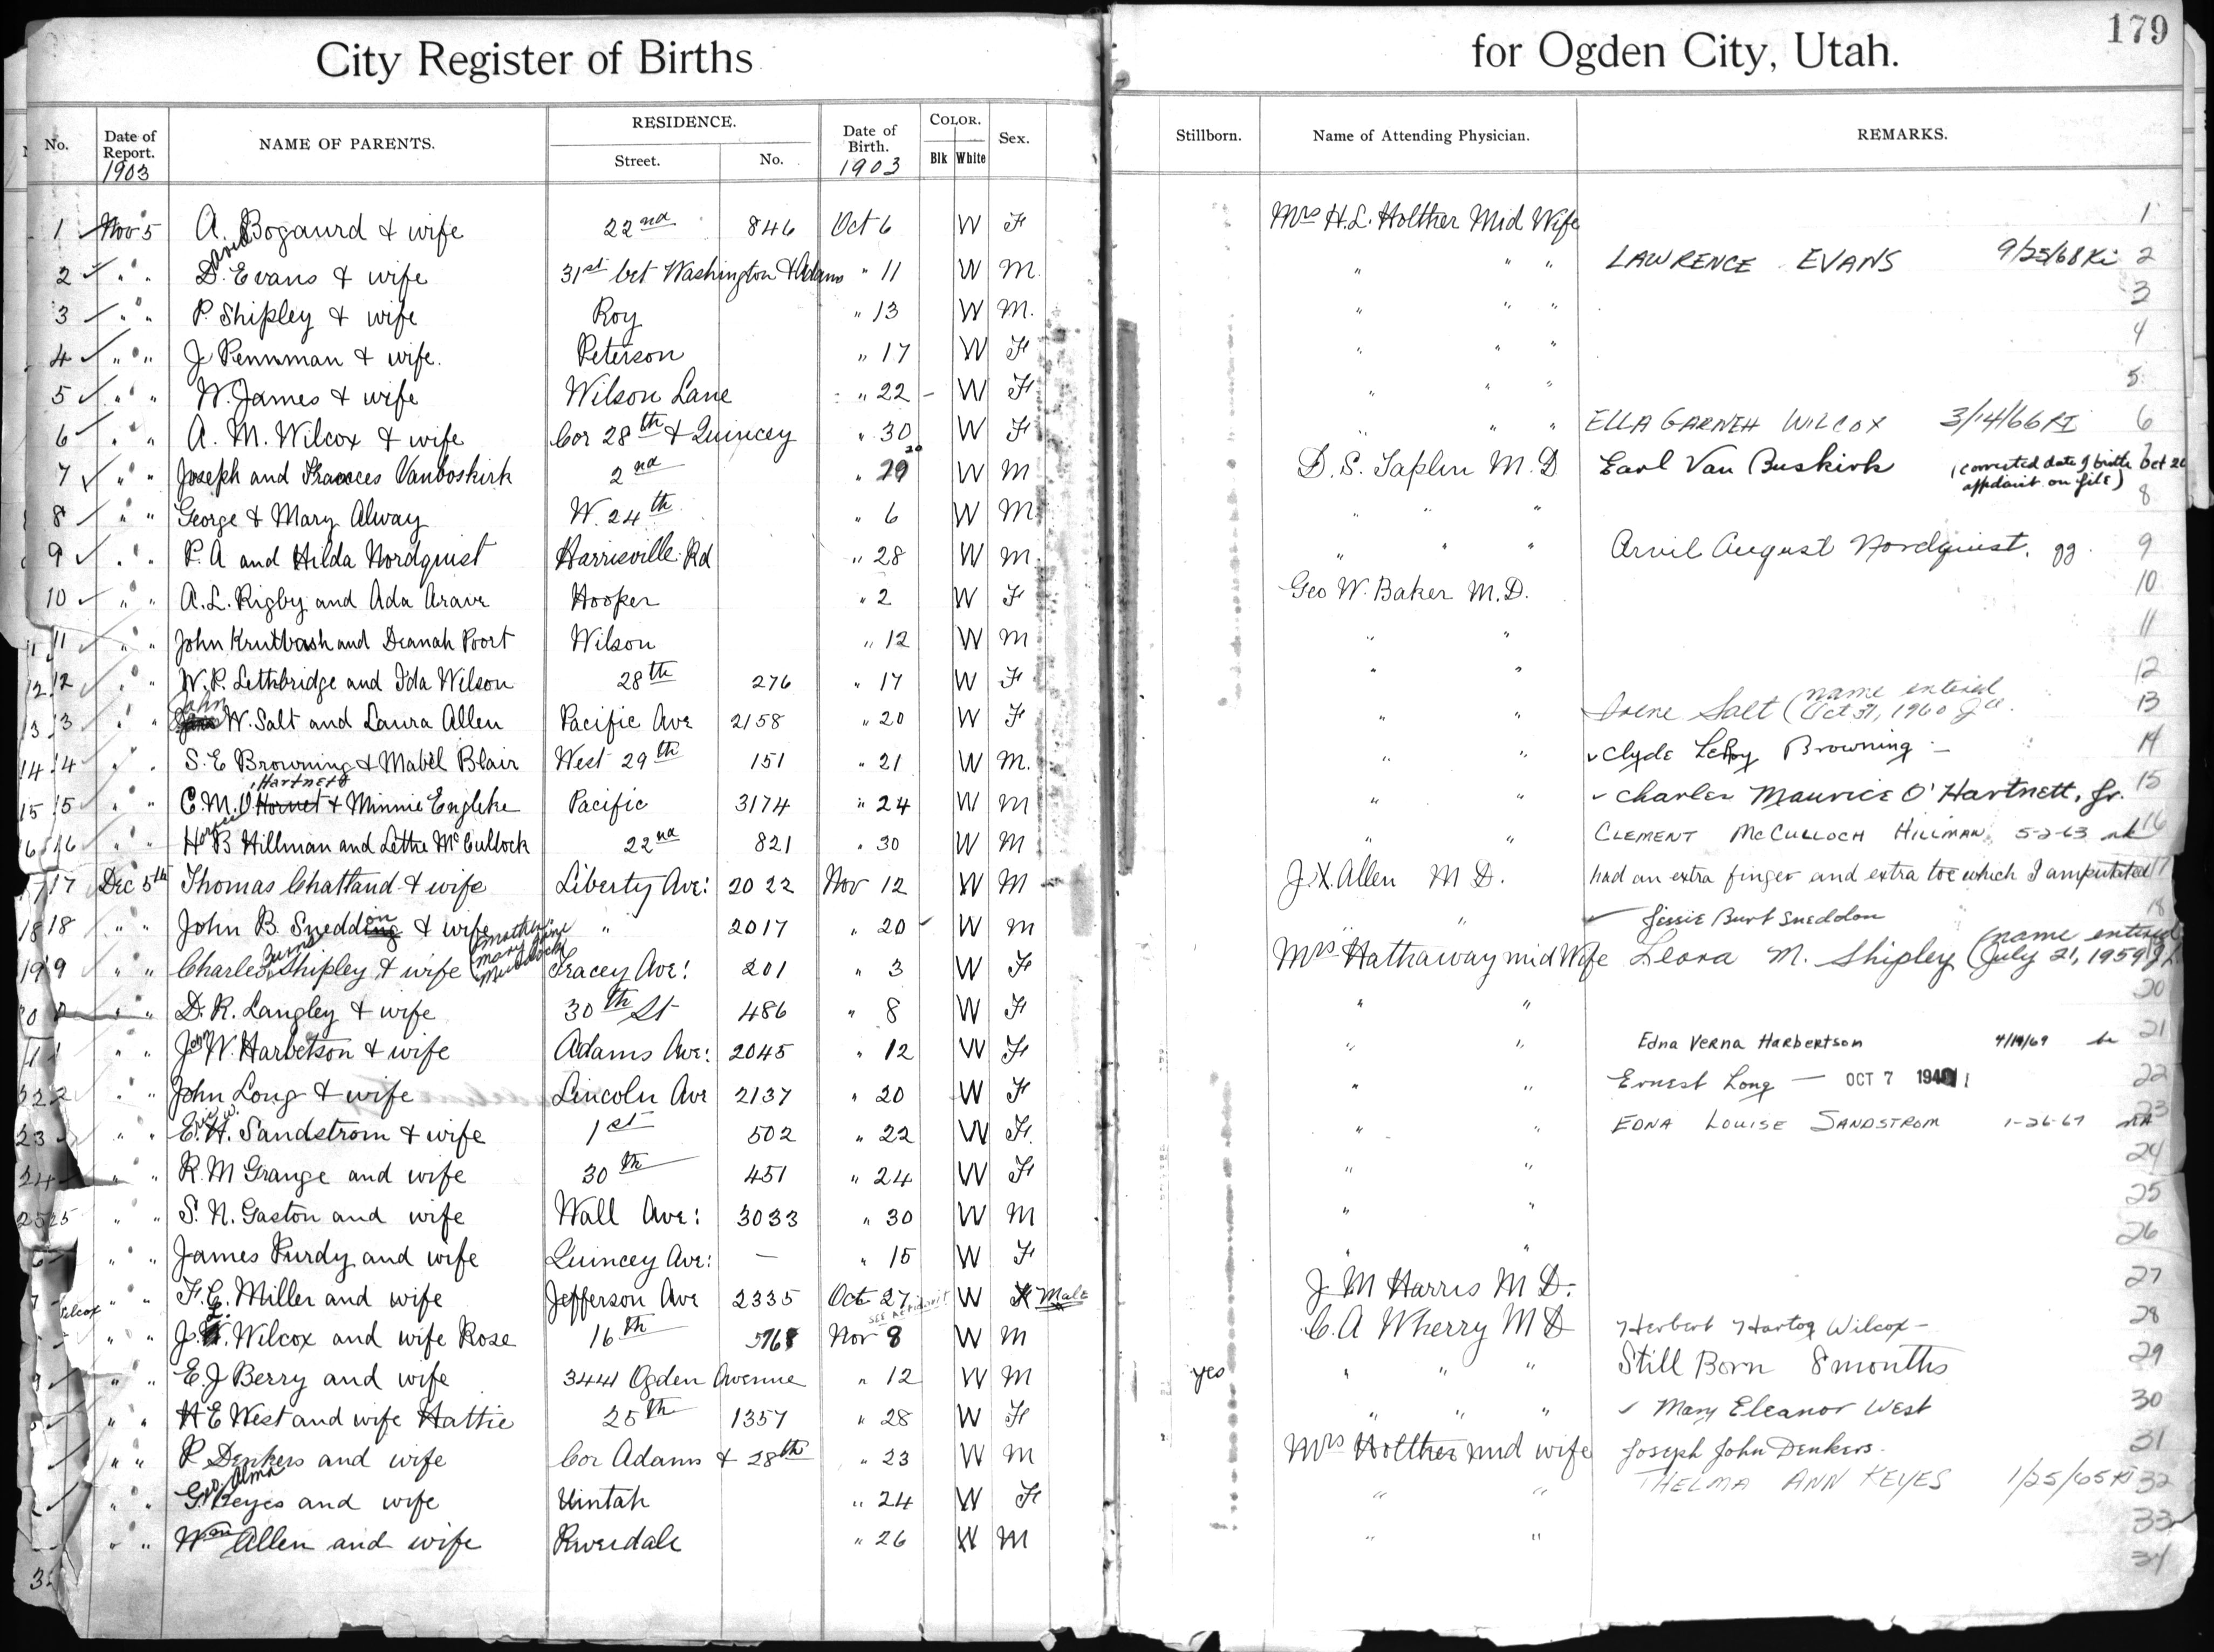 179
City Register of Births for Ogden City, Utah.
No. Date of Report. NAME OF PARENTS. RESIDENCE. Street. No. Date of Birth. COLOR. Blk White Sex. Stillborn. Name of Attending Physician. REMARKS.
1903 1903
1 Nov 5 A. Bogaurd & wife 22nd 846 Oct 6 W F Mrs H.L. Holther Mid Wife 1
David
2 " " D. Evans & wife 31st bet Washington & Adams " 11 W M. " " " LAWRENCE EVANS 9/25/68 Ki 2
3 " " P. Shipley & wife Roy " 13 W M. " " " 3
4 " " J Pennman & wife. Peterson " 17 W F " " " 4
5 " " W. James & wife Wilson Lane " 22 - W F " " " 5
6 " " A. M. Wilcox & wife Cor 28th & Quincey " 30 W F " " " ELLA GARNEH WILCOX 3/14/66 KI 6
7 " " Joseph and Frances Vanboskirk 2nd " 29 20 W M D. S. Taplin M. D Earl Van Buskirk (corrected date of birth Oct 20 7
affidavit on file)
8 " " George & Mary Alway W. 24th " 6 W M " " " 8
9 " " P. A and Hilda Nordquist Harrisville Rd " 28 W M. " " " Arvil August Nordquist. gg. 9
10 " " A. L. Rigby and Ada Arave Hooper " 2 W F Geo W. Baker M.D. 10
11 11 " " John Krutbosh and Deanah Poort Wilson " 12 W M " " 11
12 12 " " W. P. Lethbridge and Ida Wilson 28th 276 " 17 W F " " 12
John
13 13 " " W. Salt and Laura Allen Pacific Ave 2158 " 20 W F " " Irene Salt (name entered Oct 31, 1960 13
14 14 " " S. E Browning & Mabel Blair West 29th 151 " 21 W M. " " Clyde LeRoy Browning - 14
Hartnett
15 15 " " C. M. O'Hornet & Minnie Engleke Pacific 3174 " 24 W M " " Charles Maurice O'Hartnett, Jr. 15
Horace
16 16 " " H B Hillman and Lettie McCullock 22nd 821 " 30 W M " " CLEMENT McCULLOCH HILLMAN 5-2-63 nk 16
17 17 Dec 5th Thomas Chatland & wife Liberty Ave: 2022 Nov 12 W M J. X. Allen M D. had an extra finger and extra toe which I amputated 17
18 18 " " John B. Sneddon & wife " 2017 " 20 W M " " Jessie Burt Sneddon 18
Burns (mother Mary Jane Murdock)
19 19 " " Charles Shipley & wife Tracey Ave: 201 " 3 W F Mrs Hathaway mid Wife Leora M. Shipley (name entered July 21, 1959 19
20 " " D. R. Langley & wife 30th St 486 " 8 W F " " 20
John
" " J W. Harbetson & wife Adams Ave: 2045 " 12 W F " " Edna Verna Harbertson 4/19/69 21
22 " " John Long & wife Lincoln Ave 2137 " 20 W F " " Ernest Long — OCT 7 1941 22
23 " " E. H. Sandstrom & wife 1st 502 " 22 W F. " " EDNA LOUISE SANDSTROM 1-26-67 nk 23
24 " " R. M Grange and wife 30th 451 " 24 W F " " 24
25 25 " " S. N. Gaston and wife Wall Ave: 3033 " 30 W M " " 25
" " James Purdy and wife Quincey Ave: — " 15 W F " " 26
" " F. E. Miller and wife Jefferson Ave 2335 Oct 27 W F Male J M Harris M D. 27
SEE Affidavit
Wilcox " " J. L. Wilcox and wife Rose 16th 576 Nov 8 W M C. A Wherry M D Herbert Hartog Wilcox - 28
" " E. J Berry and wife 3441 Ogden Avenue " 12 W M yes " " " Still Born 8 months 29
" " H E West and wife Hattie 25th 1357 " 28 W F " " " Mary Eleanor West 30
" " P. Denkers and wife Cor Adams & 28th " 23 W M Mrs Holther mid wife Joseph John Denkers. 31
Alma
" " G. Keyes and wife Uintah " 24 W F " " THELMA ANN KEYES 1/25/65 KI 32
" " Wm Allen and wife Riverdale " 26 W M " " 33
34